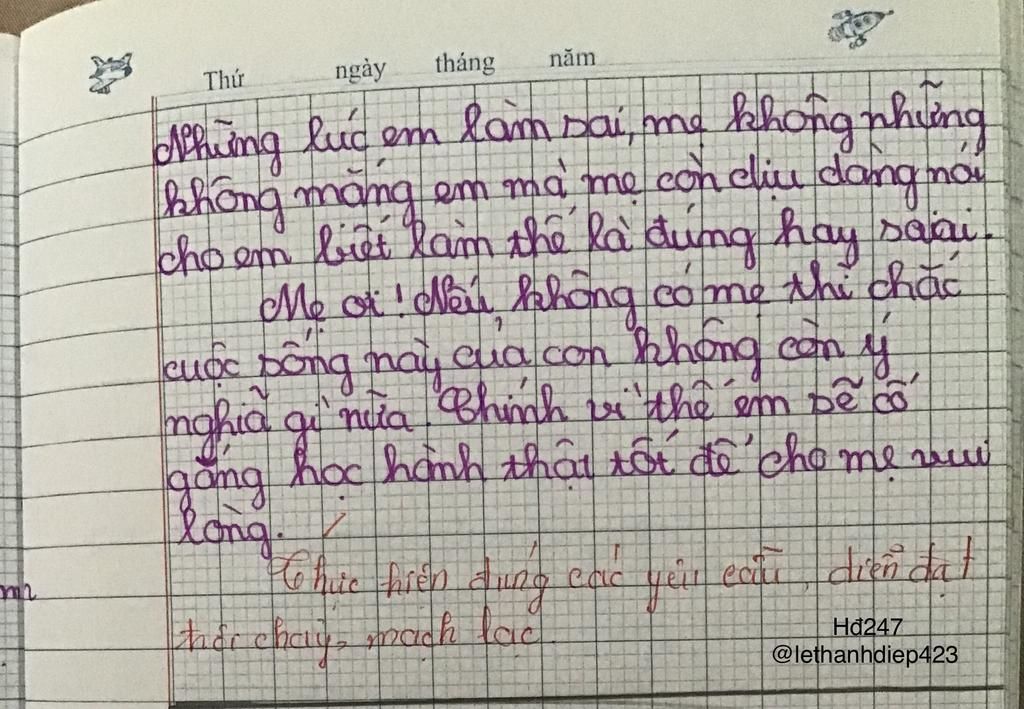 Thứ ngày tháng năm
Những lúc em làm sai, mẹ không những
không mắng em mà mẹ còn dịu dàng nói
cho em biết làm thế là đúng hay saiai.
Mẹ ơi! Nếu không có mẹ thì chắc
cuộc sống này của con không còn ý
nghĩa gì nữa. Chính vì thế em sẽ cố
gắng học hành thật tốt để cho mẹ vui
lòng.
Thực hiện đúng các yêu cầu, diễn đạt
trôi chảy, mạch lạc
Hđ247
@lethanhdiep423